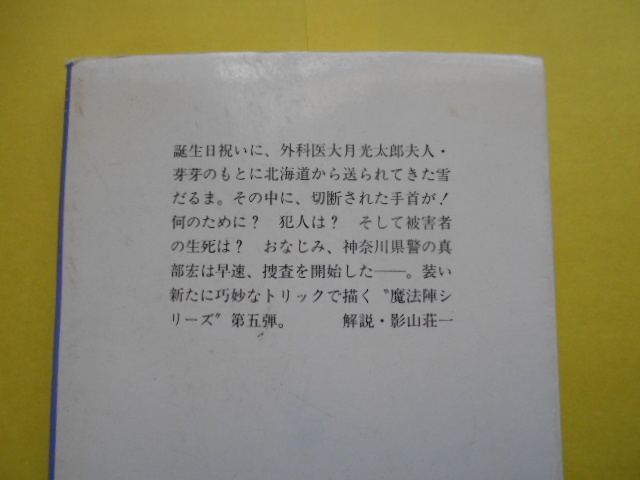 誕生日祝いに、外科医大月光太郎夫人・
芽芽のもとに北海道から送られてきた雪
だるま。その中に、切断された手首が！
何のために？　犯人は？　そして被害者
の生死は？　おなじみ、神奈川県警の真
部宏は早速、捜査を開始した――。装い
新たに巧妙なトリックで描く〝魔法陣シ
リーズ〟第五弾。　　解説・影山荘一